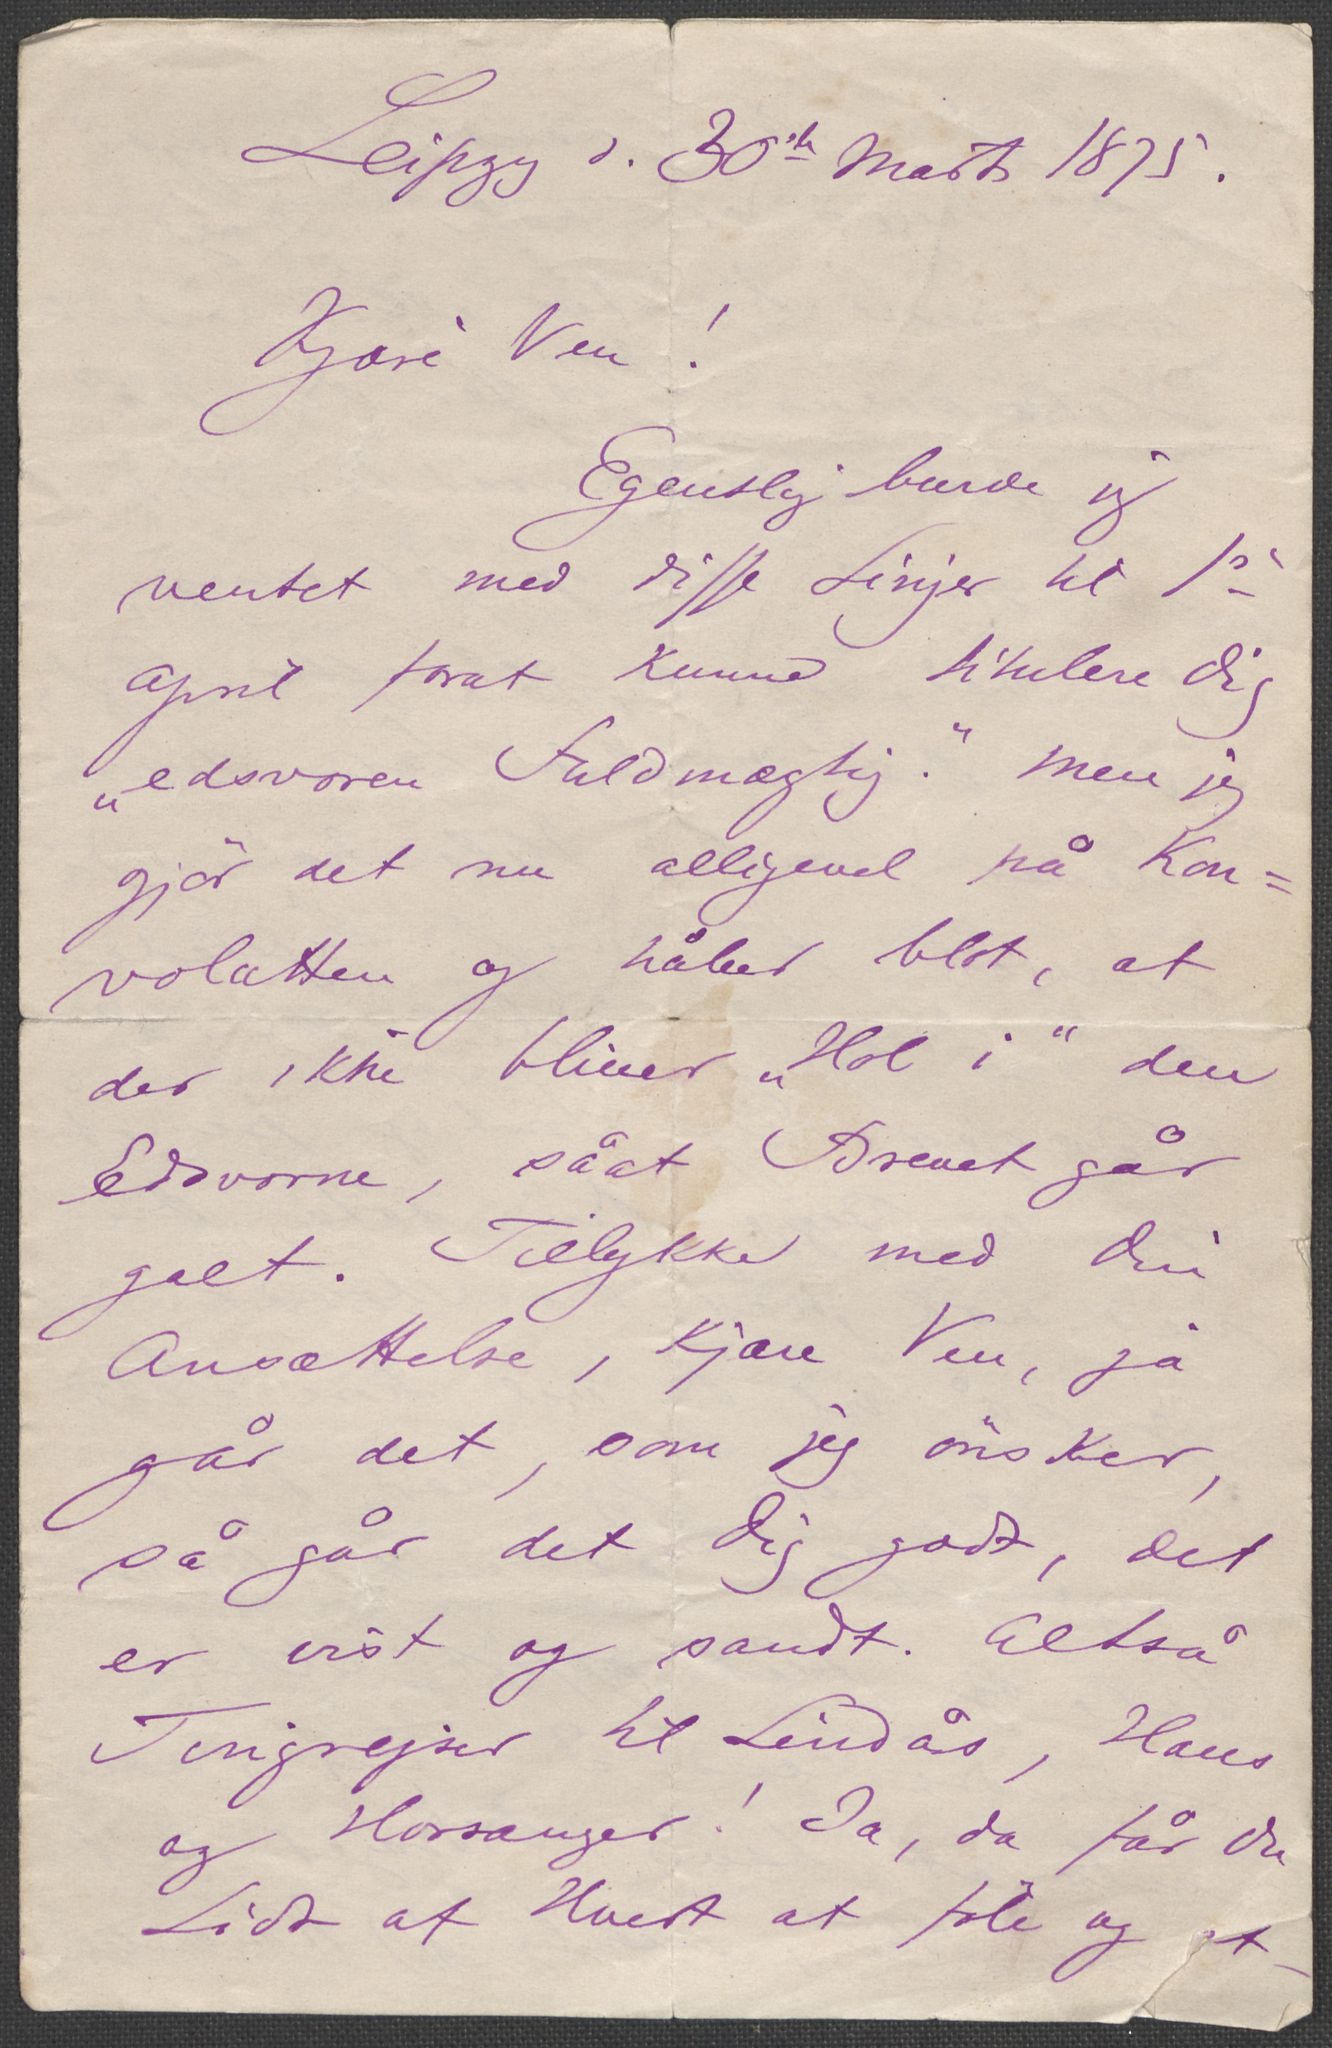 Leipzig d. 30te Marts 1875.
Kjære Ven!
Egentlig burde jeg
ventet med disse Linjer til 1ste
April forat kunne titulere Dig
„edsvoren Fuldmægtig." Men jeg
gjör det nu alligevel på Kon=
volutten og håber blot, at
der ikke bliver „Hol i" den
Edsvorne, såat Brevet går
galt. Tillykke med Din
Ansættelse, kjære Ven, ja
går det, som jeg önsker,
så går det Dig godt, det
er vist og sandt. Altså
Tingrejser til Lindås, Haus
og Hosanger! Ja, da får Du
Lidt af Hvert at föle og